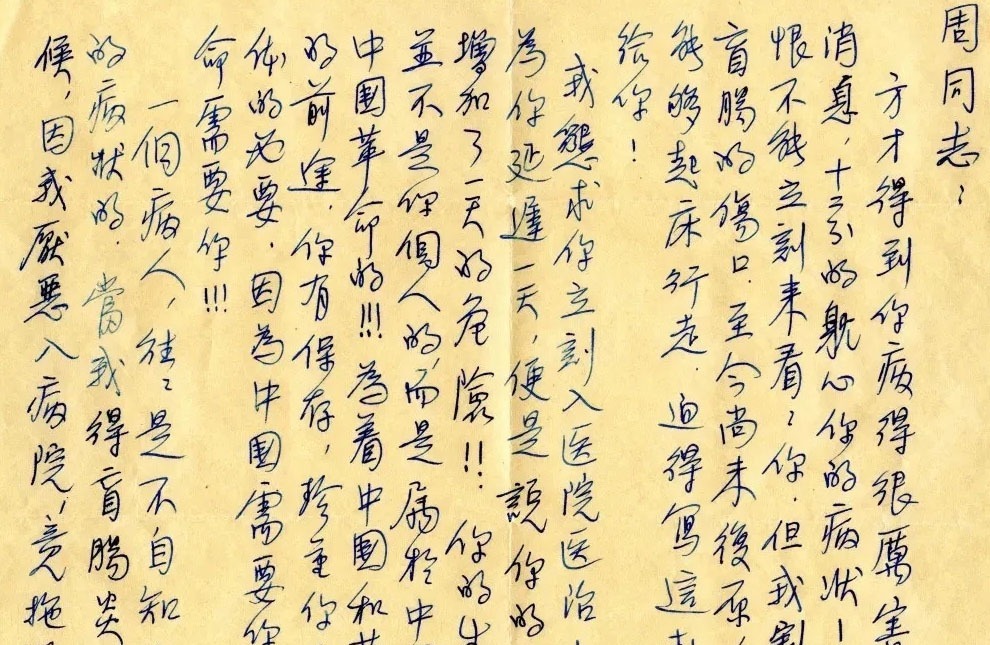 周同志：
方才得到你病得很厲害
消息，十二分的躭心你的病狀！
恨不能立刻来看看你．但我割
盲腸的傷口．至今尚未復原，
能够起床行走．迫得寫這
給你！
我懇求你立刻入医院医治
為你延遲一天，便是說你的
增加了一天的危險!! 你的生
並不是你個人的，而是屬於中
中国革命的!!! 為着中国和
的前途．你有保存，珍重你
体的必要．因為中国需要你
命需要你!!!
一個病人，往〻是不自知
的病狀的．當我得盲腸炎
候，因我厭惡入病院，竟拖